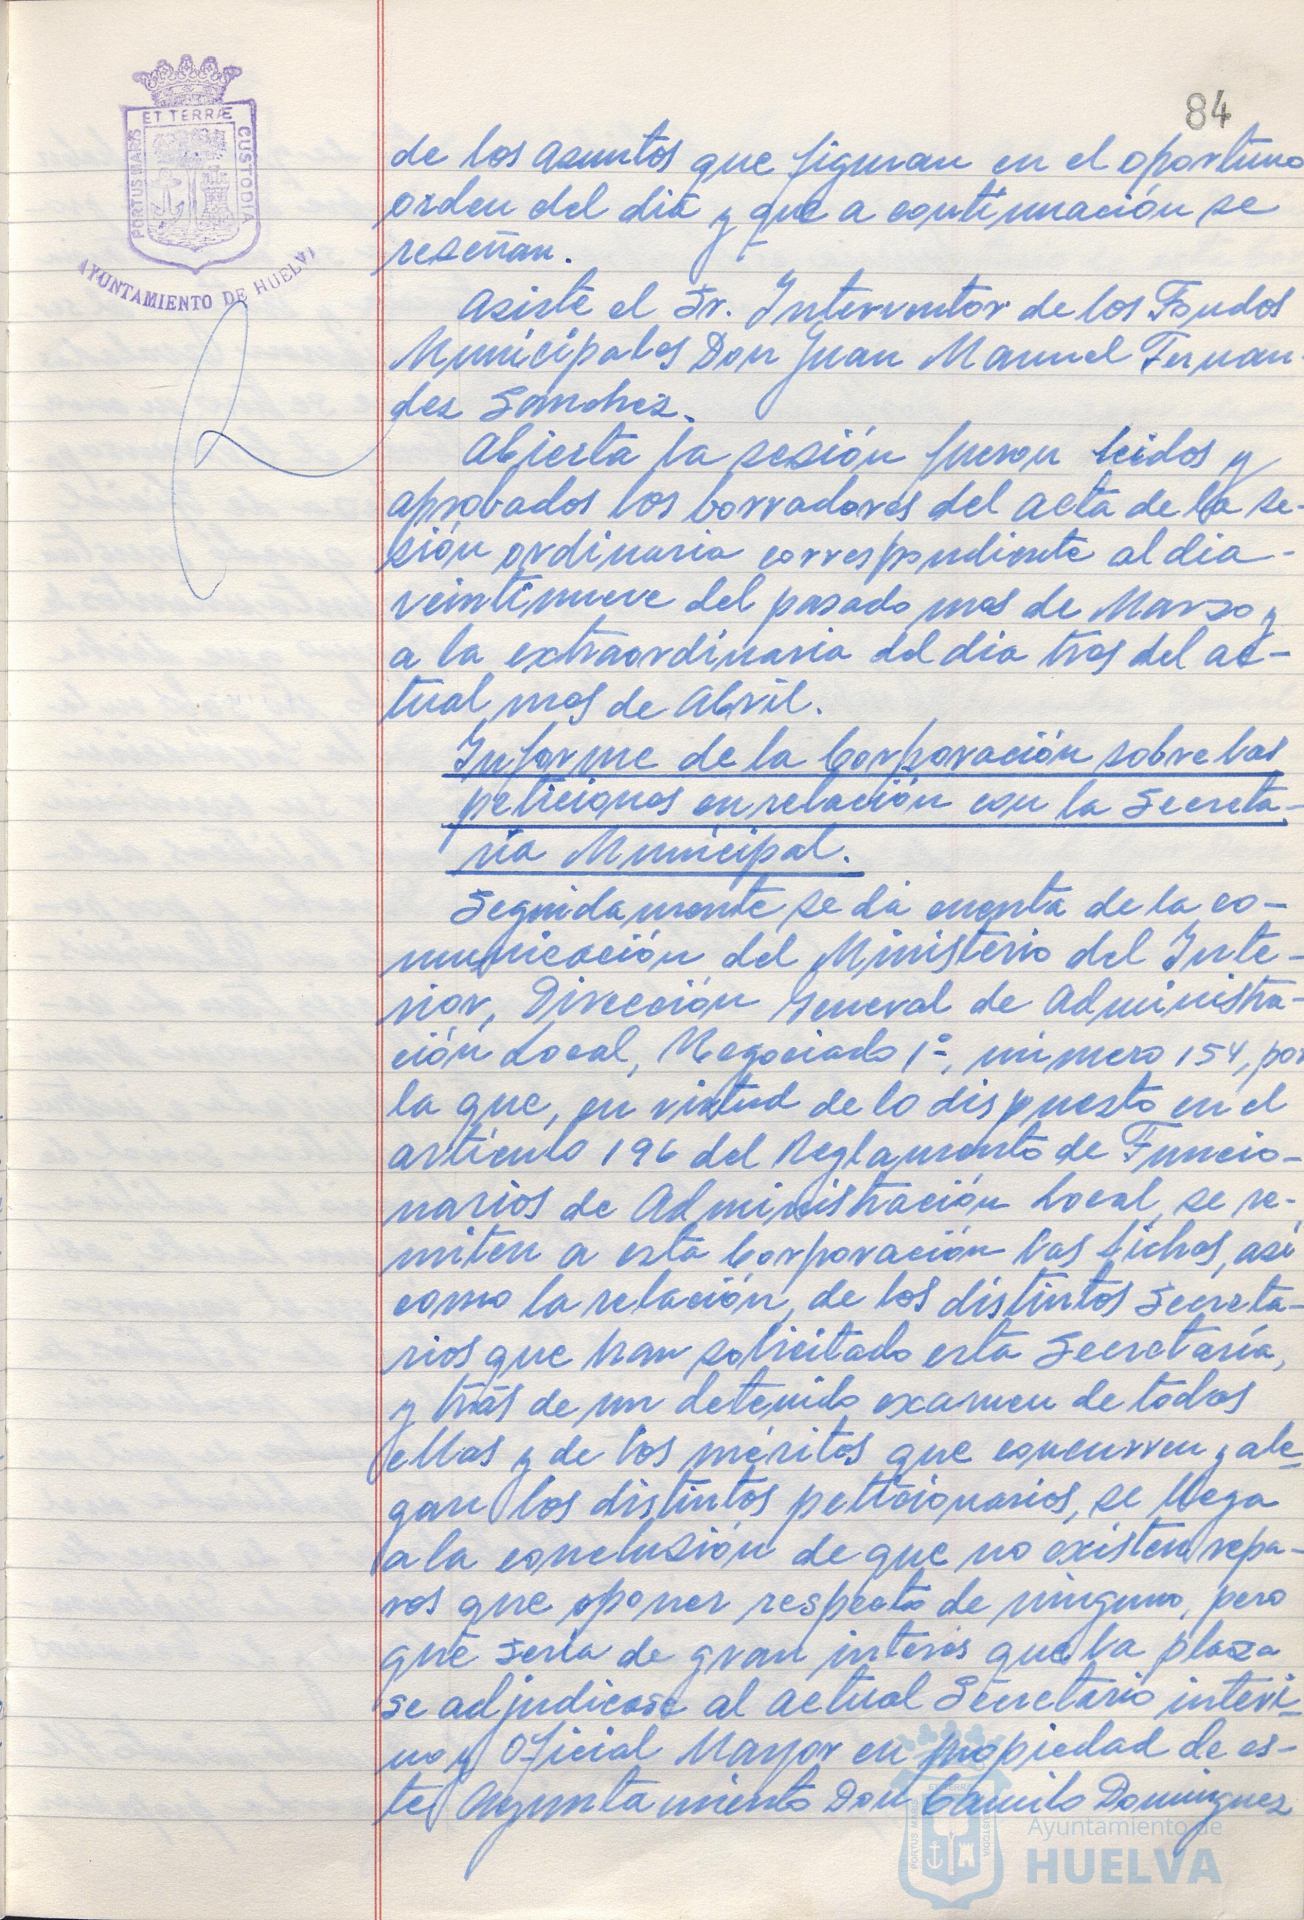 84
ET TERRÆ
PORTUS MARIS
CUSTODIA
AYUNTAMIENTO DE HUELVA
de los asuntos que figuran en el oportuno
orden del dia y que a continuación se
reseñan.
Asiste el Sr. Interventor de los Fondos
Municipales Don Juan Manuel Fernan-
dez Sanchez.
Abierta la sesión fueron leidos y
aprobados los borradores del acta de la se-
sión ordinaria correspondiente al dia -
veintinueve del pasado mes de Marzo y
a la extraordinaria del dia tres del ac-
tual mes de Abril.
Informe de la Corporación sobre las
peticiones en relación con la Secreta-
ria Municipal.
Seguidamente se dá cuenta de la co-
municación del Ministerio del Inte-
rior, Dirección General de Administra-
ción Local, Negociado 1º, número 154, por
la que, en virtud de lo dispuesto en el
artículo 196 del Reglamento de Funcio-
narios de Administración Local, se re-
miten a esta Corporación las fichas, asi
como la relación, de los distintos Secreta-
rios que han solicitado esta Secretaría,
y trás de un detenido examen de todas
ellas y de los méritos que concurren y ale-
gan los distintos peticionarios, se llega
a la conclusión de que no existen repa-
ros que oponer respecto de ninguno, pero
que sería de gran interés que la plaza
se adjudicase al actual Secretario interi-
no y Oficial Mayor en propiedad de es-
te Ayuntamiento Don Camilo Dominguez
ET TERRÆ
PORTUS MARIS
CUSTODIA
Ayuntamiento de
HUELVA